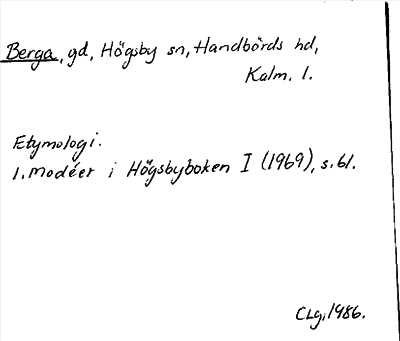 Berga, gd, Högsby sn, Handbörds hd,
Kalm. l.
Etymologi.
I. Modéer i Högsbyboken I (1969), s. 61.
CLg, 1986.